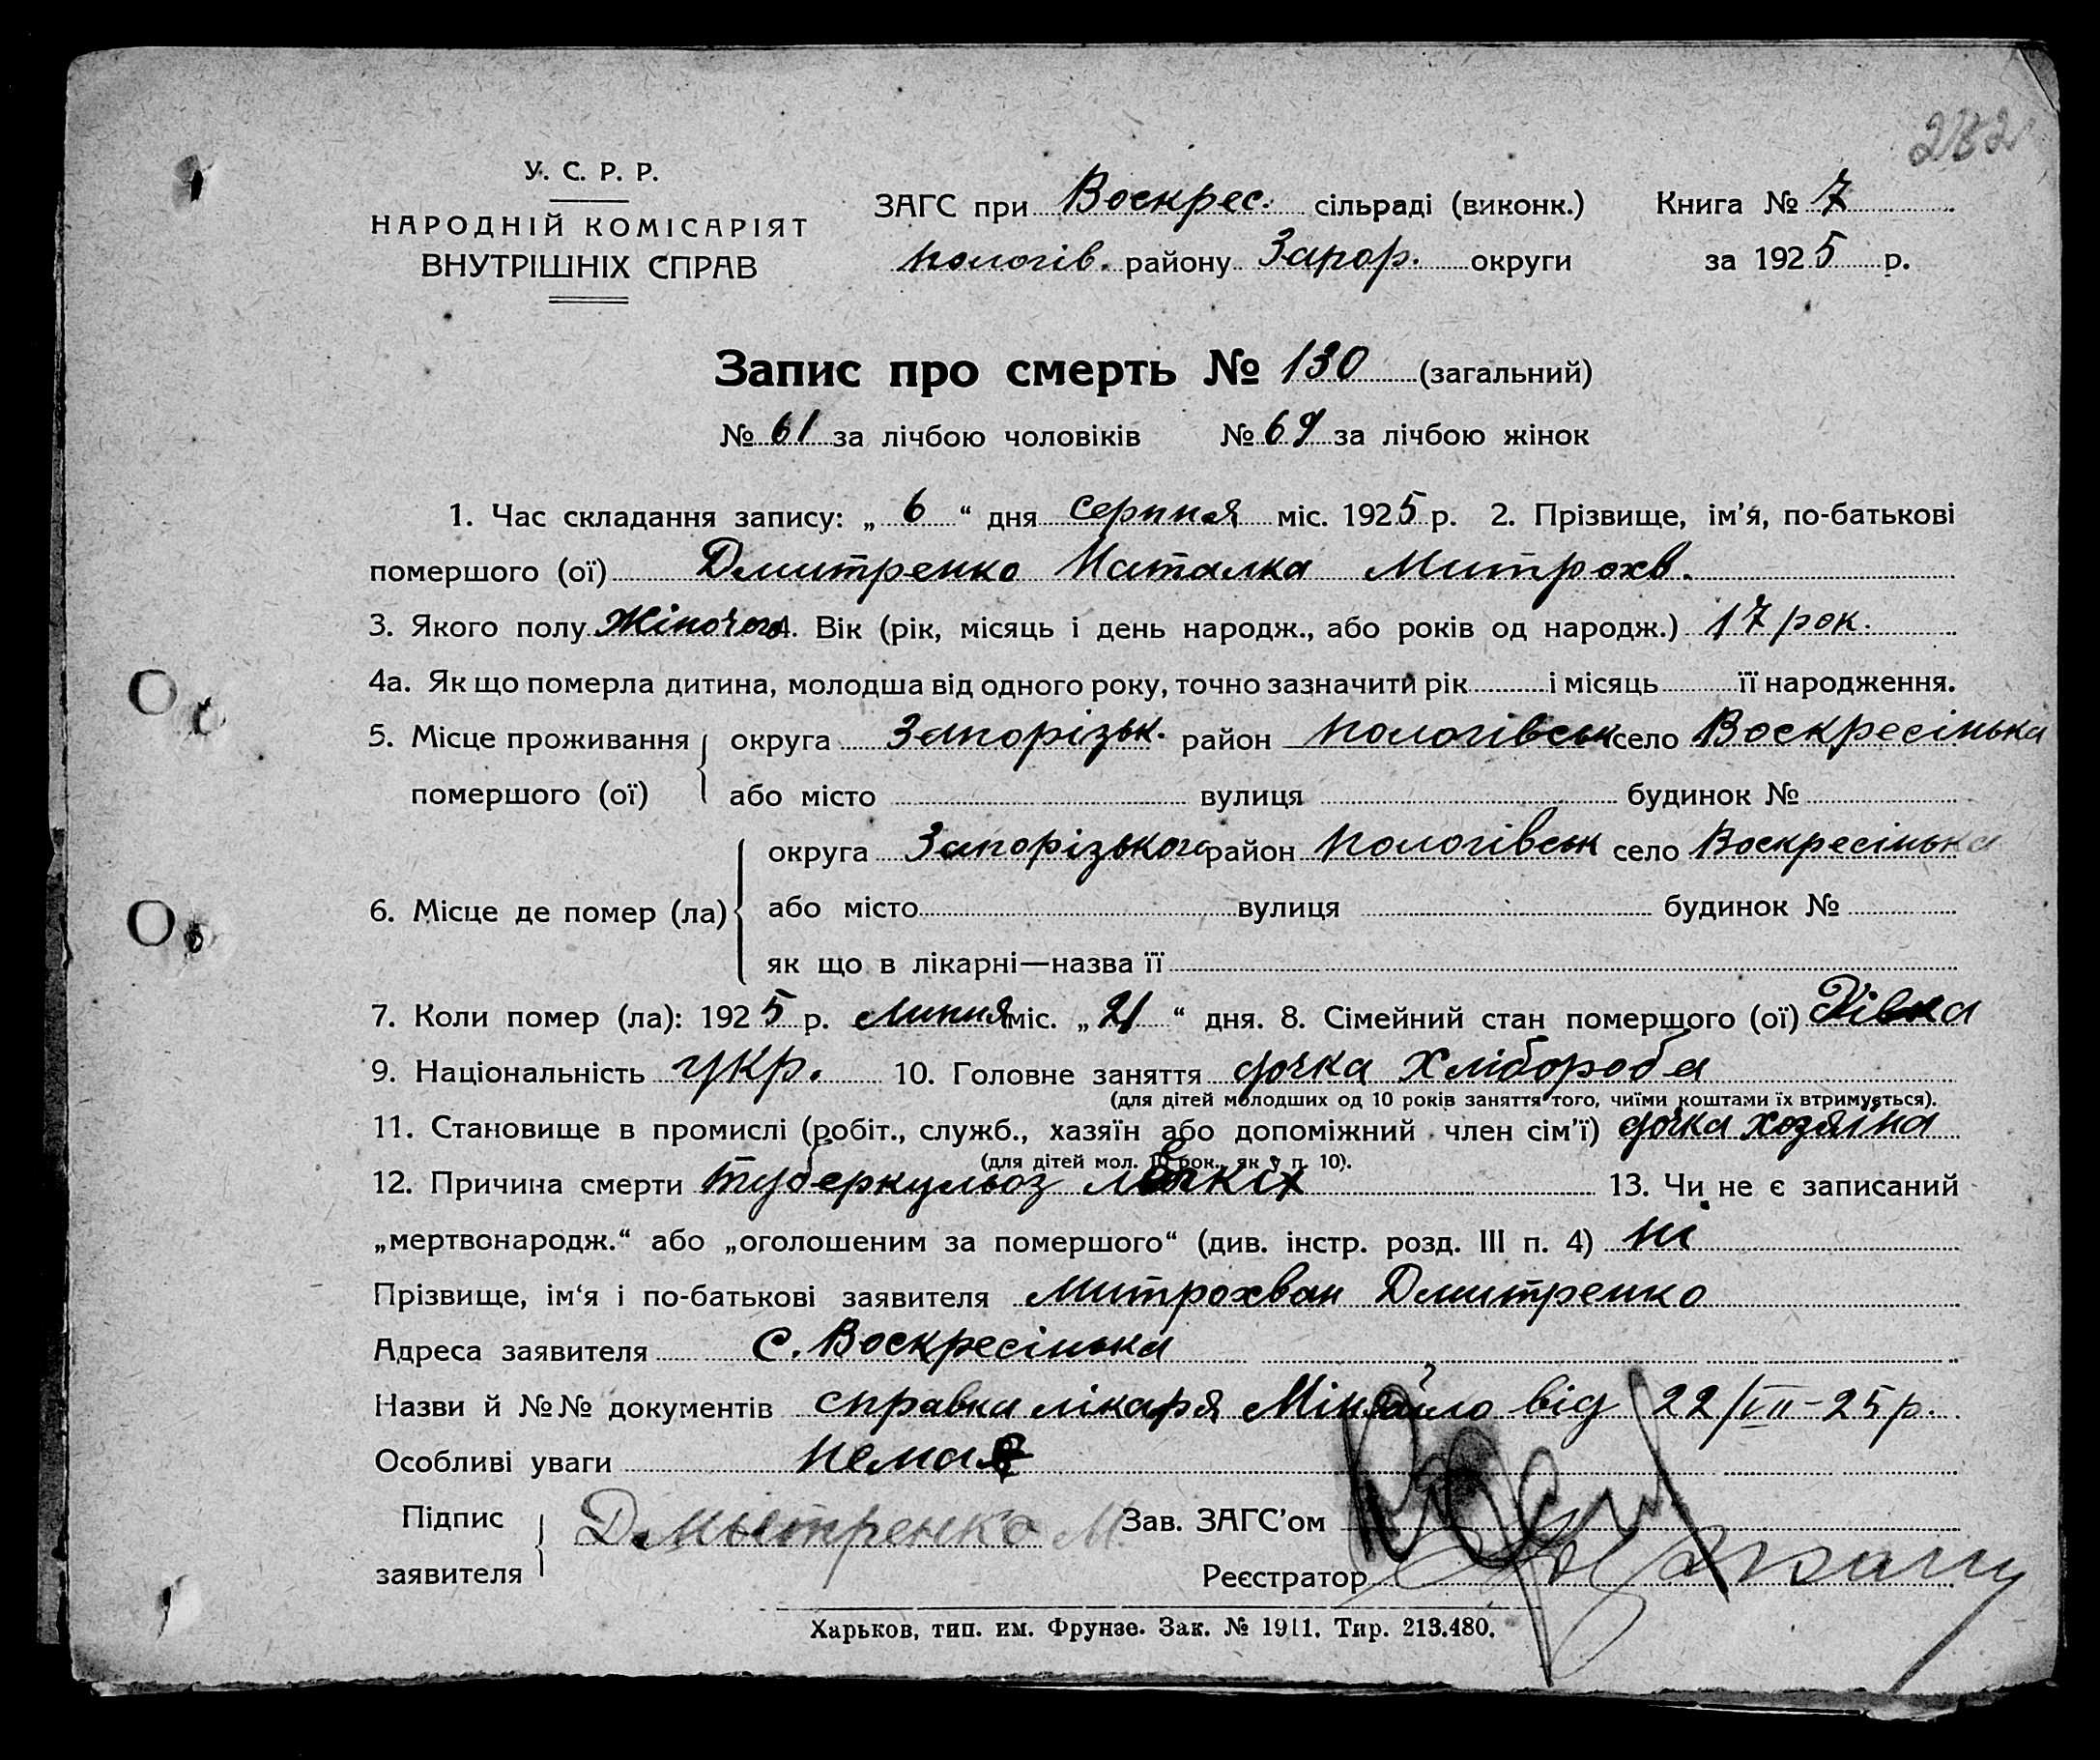 282
У. С. Р. Р.
НАРОДНІЙ КОМІСАРІЯТ
ВНУТРІШНІХ СПРАВ
ЗАГС при Воскрес. сільраді (виконк.) Книга № 7
пологів. району Запор. округи за 1925 р.
Запис про смерть № 130 (загальний)
№ 61 за лічбою чоловіків № 69 за лічбою жінок
1. Час складання запису: „ 6 “ дня серпня міс. 1925 р. 2. Прізвище, ім’я, по-батькові
помершого (ої) Дмитренко Наталка Митрохв.
3. Якого полу Жіночого 4. Вік (рік, місяць і день народж., або років од народж.) 17 рок.
4а. Як що померла дитина, молодша від одного року, точно зазначити рік і місяць її народження.
5. Місце проживання помершого (ої) округа Запорізьк. район Пологівськ село Воскресінька
або місто вулиця будинок №
6. Місце де помер (ла) округа Запорізького район Пологівськ село Воскресінька
або місто вулиця будинок №
як що в лікарні—назва її
7. Коли помер (ла): 1925 р. липня міс. „ 21 “ дня. 8. Сімейний стан помершого (ої) Дівка
9. Національність укр. 10. Головне заняття дочка хлібороба
(для дітей молодших од 10 років заняття того, чиїми коштами їх втримується).
11. Становище в промислі (робіт., служб., хазяїн або допоміжний член сім’ї) дочка хозяїна
(для дітей мол. 10 рок., як у п. 10).
12. Причина смерти туберкульоз легких 13. Чи не є записаний
„мертвонародж.“ або „оголошеним за помершого“ (див. інстр. розд. III п. 4) ні
Прізвище, ім‘я і по-батькові заявителя Митрохван Дмитренко
Адреса заявителя с. Воскресінька
Назви й №№ документів справка лікаря від 22/VII-25 р.
Особливі уваги немає
Підпис заявителя Дмытренко М. Зав. ЗАГС’ом
Реєстратор
Харьков, тип. им. Фрунзе. Зак. № 1911. Тир. 213.480.